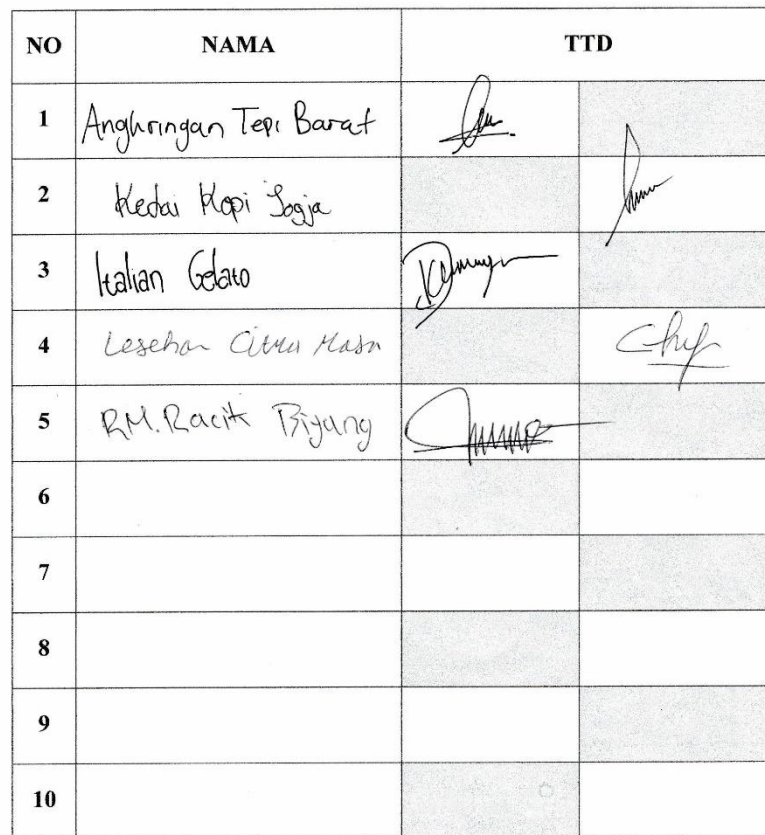 NO NAMA TTD
1 Angkringan Tepi Barat
2 Kedai Kopi Jogja
3 Italian Gelato
4 Lesehan Citra Rasa
5 RM. Racik Biyung
6
7
8
9
10